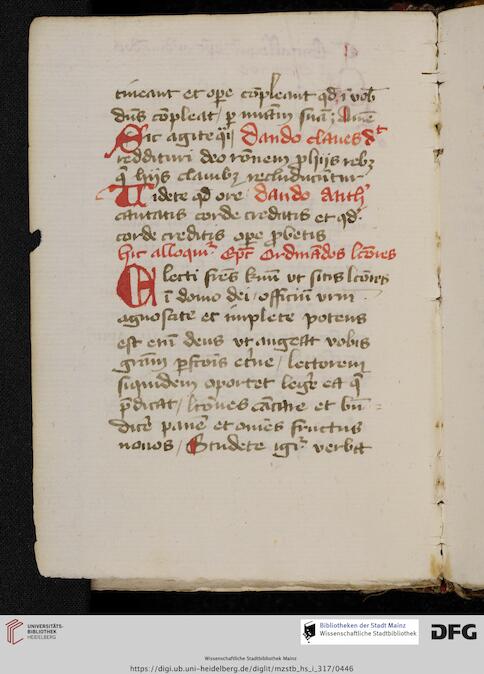 tineant et ope compleant qd i vob
dns compleat / p miam sua; Amen
Sic agite qsi Dando claues dt
reddituri deo ronem p hijs rebz
q hijs clauibz recluduntur
Uidete qd ore Dando Antih
cantatis corde creditis et qd
corde creditis ope pbetis
hic alloquit Epc Ordinandos lcores
Electi fres kmi vt sitis lcores
i domo dei / officiu vrm
agnoscite et implete potens
est eni deus vt augeat vobis
gram pfcois etne / lectorem
siquidem oportet legere ea q
pdicat / lcones cantare et bn=
dice pane et omes fructus
nouos / Studete igit verba
UNIVERSITÄTS-
BIBLIOTHEK
HEIDELBERG
Bibliotheken der Stadt Mainz
Wissenschaftliche Stadtbibliothek
DFG
Wissenschaftliche Stadtbibliothek Mainz
https://digi.ub.uni-heidelberg.de/diglit/mzstb_hs_i_317/0446